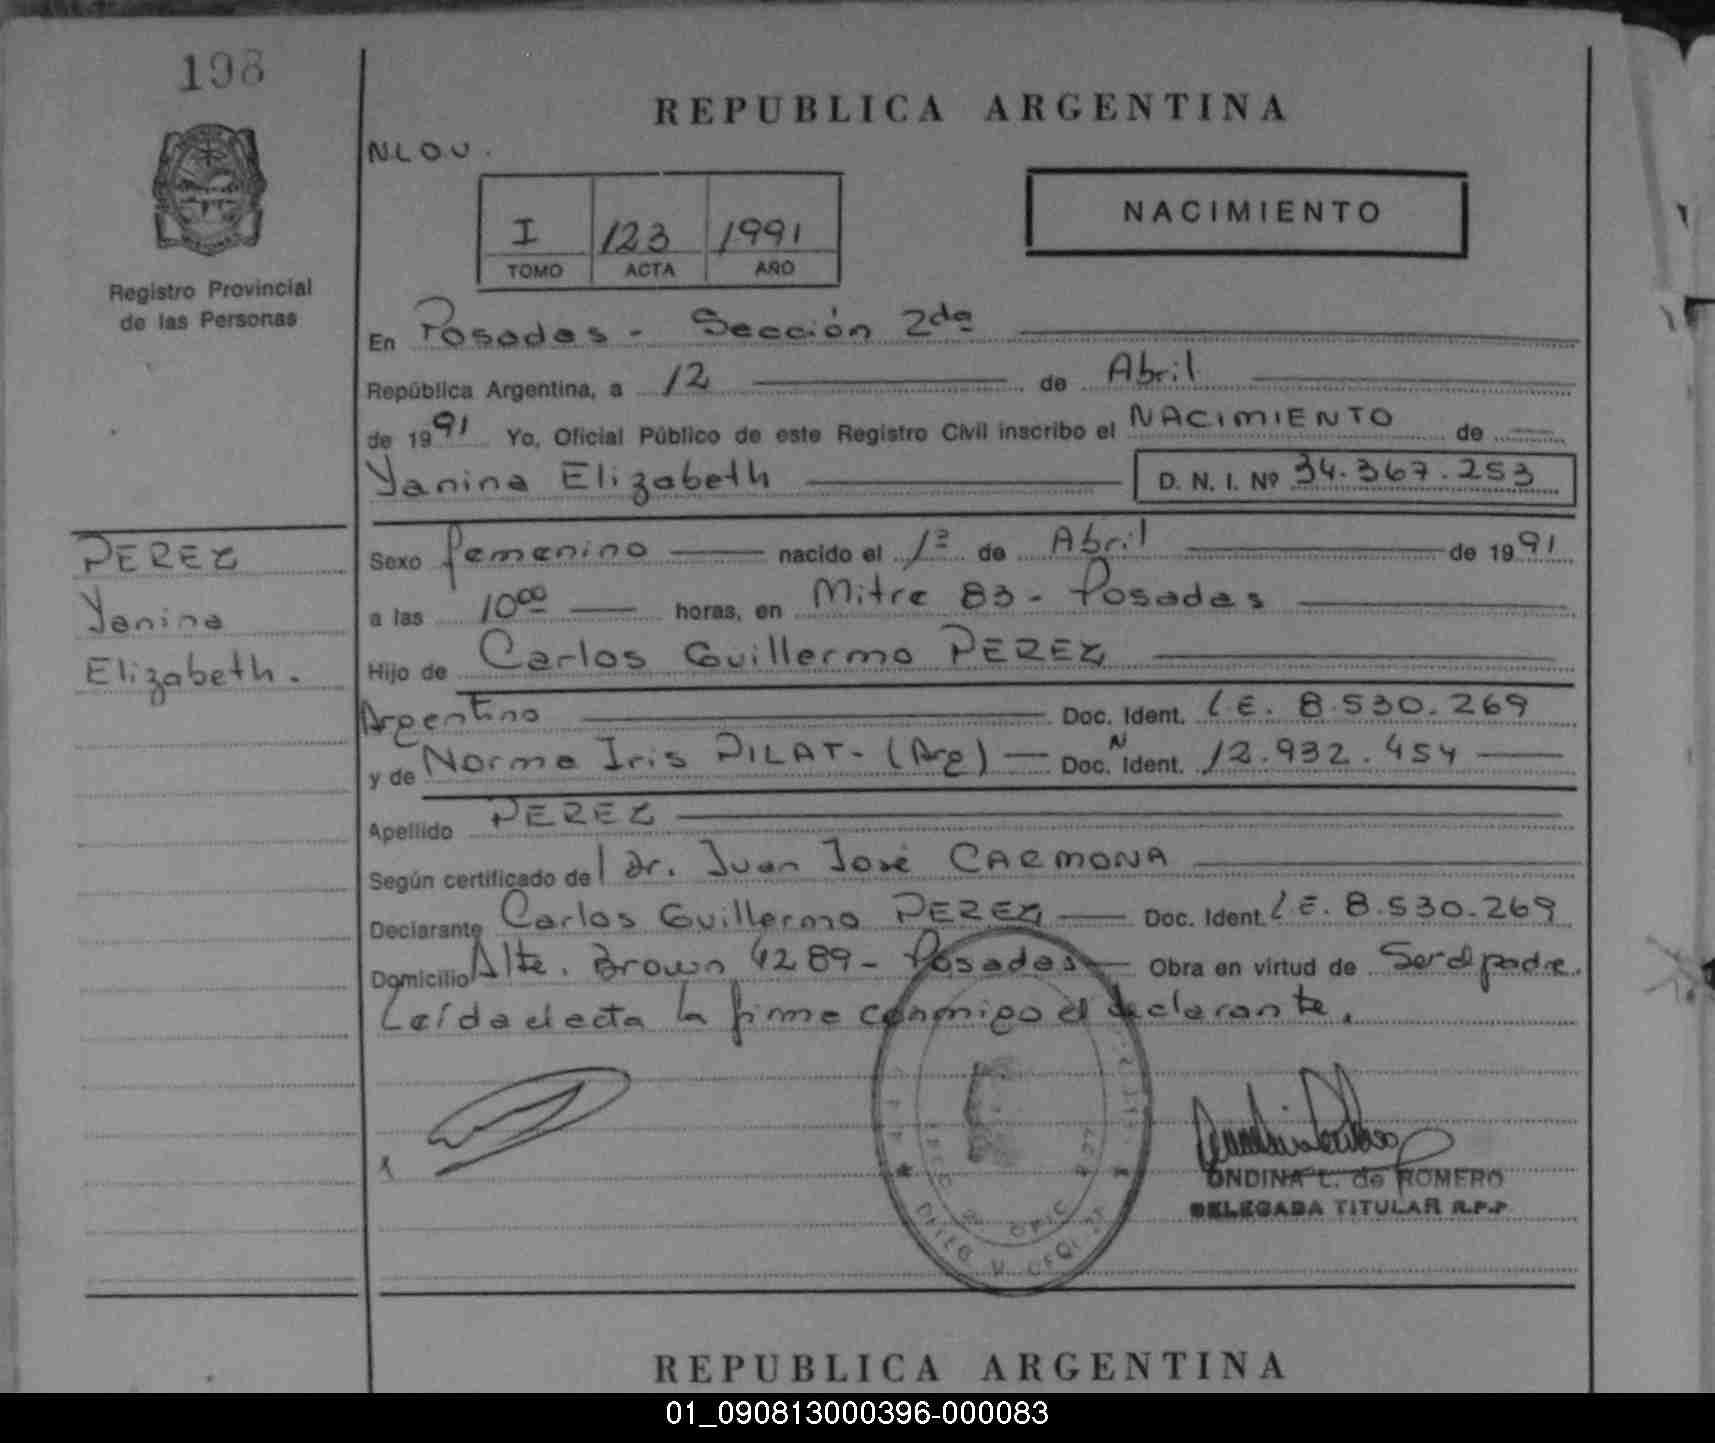 198
REPUBLICA ARGENTINA
N.L.O.U.
I 123 1991
TOMO ACTA AÑO
NACIMIENTO
Registro Provincial
de las Personas
En Posadas - Sección 2da
República Argentina, a 12 de Abril
de 1991 Yo, Oficial Público de este Registro Civil inscribo el NACIMIENTO de
Yanina Elizabeth D. N. I. Nº 34.367.253
PEREZ
Yanina
Elizabeth.
Sexo femenino nacido el 1º de Abril de 1991
a las 10:00 horas, en Mitre 83 - Posadas
Hijo de Carlos Guillermo PEREZ
Argentino Doc. Ident. L.E. 8.530.269
y de Norma Iris PILAT - (Arg) Doc. N Ident. 12.932.454
Apellido PEREZ
Según certificado del dr. Juan José CARMONA
Declarante Carlos Guillermo PEREZ Doc. Ident. L.E. 8.530.269
Domicilio Alte. Brown 4289 - Posadas Obra en virtud de Ser el padre.
Leída el acta la firma conmigo el declarante.
ONDINA L. de ROMERO
DELEGADA TITULAR R.P.P
REPUBLICA ARGENTINA
01_090813000396-000083